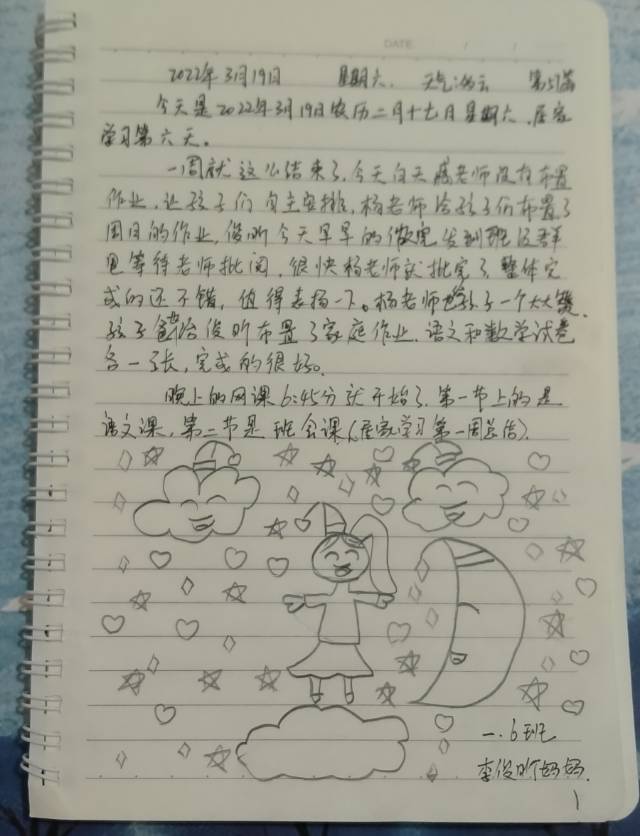 DATE / /
2022年3月19日 星期六. 天气:多云 第51篇
今天是2022年3月19日农历二月十七日星期六.居家
学习第六天。
一周就这么结束了,今天白天老师没有布置
作业,让孩子们自主安排,杨老师给孩子们布置了
周日的作业,俊昕今天早早的做完发到班级群
里等待老师批阅,很快杨老师就批完了整体完
成的还不错,值得表扬一下。杨老师一个大大
孩子爸给俊昕布置了家庭作业.语文和数学试卷
各一张,完成的很好。
晚上的网课6:45分就开始了.第一节上的是
语文课,第二节是班会课(居家学习第一周总结).
一.6班
李俊昕妈妈.
1